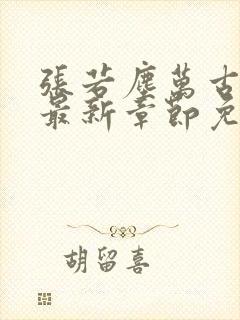 張若塵萬古
最新章節免
胡留喜